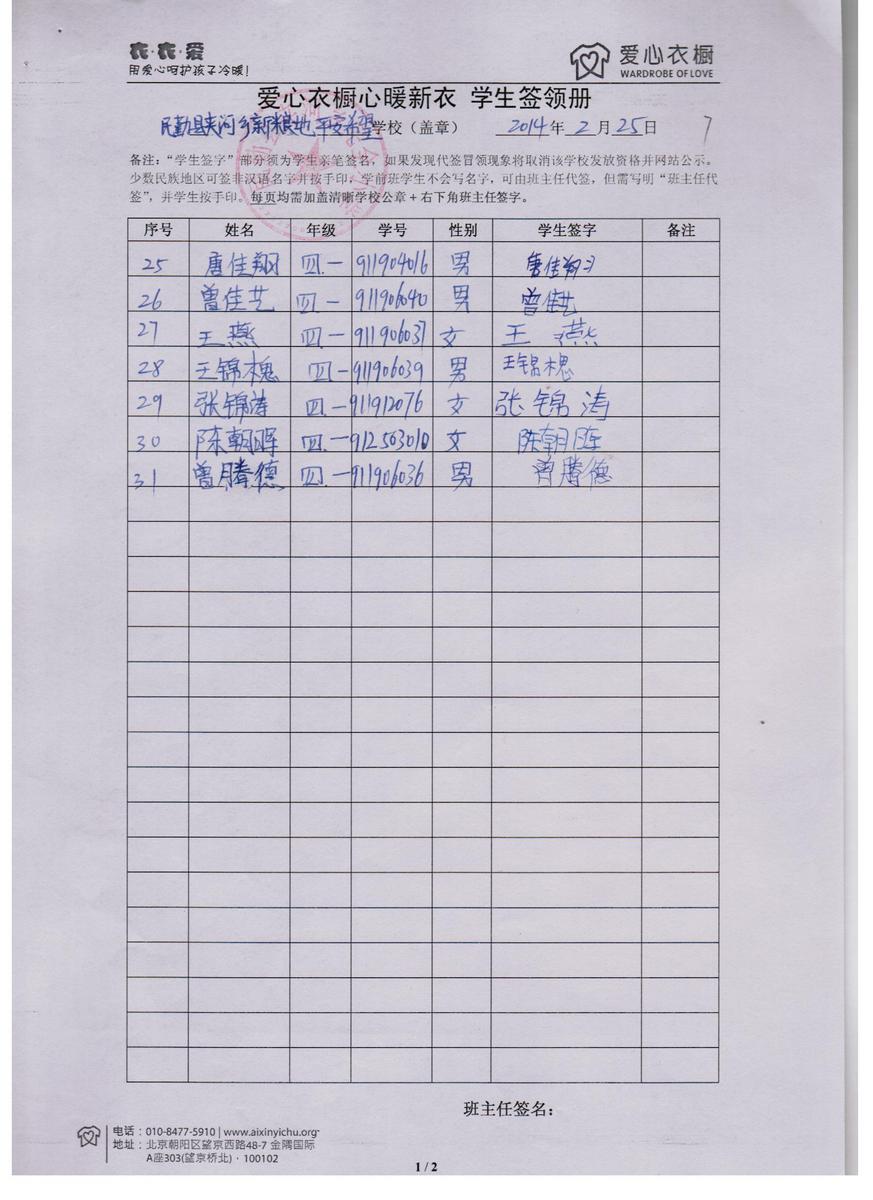 衣·衣·爱
用爱心呵护孩子冷暖!
爱心衣橱
WARDROBE OF LOVE
爱心衣橱心暖新衣 学生签领册
民勤县夹河乡新粮地平安希望学校（盖章） 2014年2月25日 7
备注：“学生签字”部分须为学生亲笔签名，如果发现代签冒领现象将取消该学校发放资格并网站公示。
少数民族地区可签非汉语名字并按手印。学前班学生不会写名字，可由班主任代签，但需写明“班主任代
签”，并学生按手印。每页均需加盖清晰学校公章+右下角班主任签字。
序号 姓名 年级 学号 性别 学生签字 备注
25 唐佳翔 四.一 911904016 男 唐佳翔
26 曾佳艺 四.一 911906040 男 曾佳艺
27 王燕 四.一 911906037 女 王燕
28 王锦槐 四一 911906039 男 王锦槐
29 张锦涛 四.一 911912076 女 张锦涛
30 陈朝晖 四.一 912503010 女 陈朝晖
31 曾腾德 四.一 911906036 男 曾腾德
班主任签名：
电话：010-8477-5910 | www.aixinyichu.org
地址：北京朝阳区望京西路48-7 金隅国际
A座303(望京桥北)·100102
1 / 2